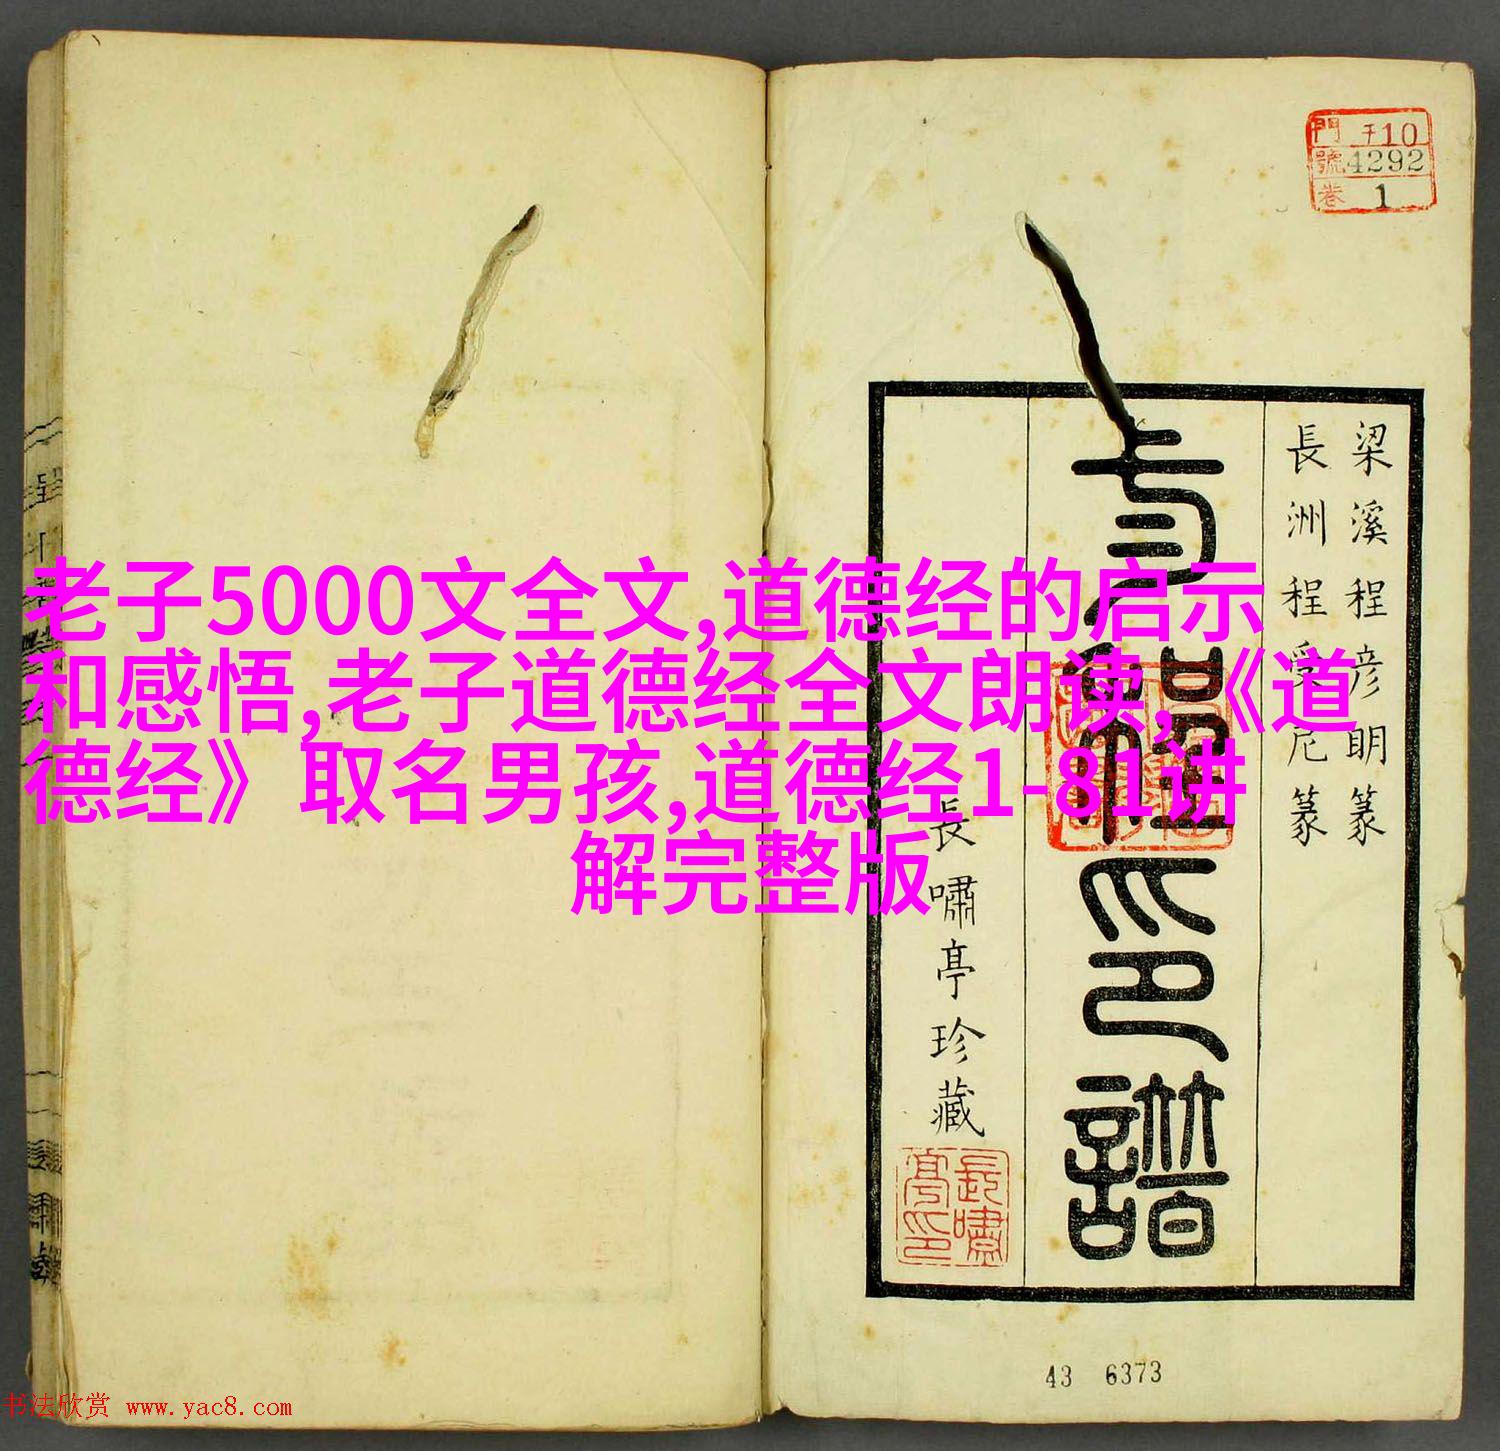 老子5000文全文,道德经的启示
和感悟,老子道德经全文朗读,《道
德经》取名男孩,道德经1-81讲
解完整版
門 子10
號 4292
卷 1
梁溪程彦明篆
長洲程受尼篆
孝經印譜
長嘯亭珍藏
長嘯亭印
43 6373
书法欣赏 www.yac8.com